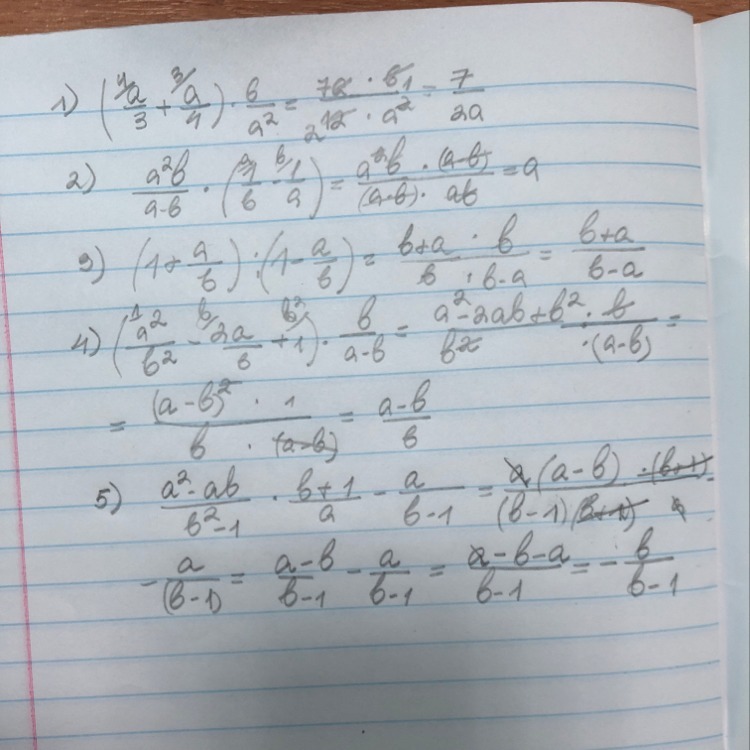 1) (⁴⁄a/3 + ³⁄a/4) · b/a² = 7a · b 1/2 12 · a² = 7/2a
2) a²b/a-b · (a⁄1/b - b⁄1/a) = a²b · (a-b)/(a-b) · ab = a
3) (1 + a/b) : (1 - a/b) = b+a · b/b · b-a = b+a/b-a
4) (1⁄a²/b² - b⁄2a/b + b²⁄1) · b/a-b = a²-2ab+b² · b/b² · (a-b) =
= (a-b)² · 1/b · (a-b) = a-b/b
5) a²-ab/b²-1 · b+1/a - a/b-1 = a(a-b) · (b+1)/(b-1)(b+1) a -
- a/(b-1) = a-b/b-1 - a/b-1 = a-b-a/b-1 = - b/b-1